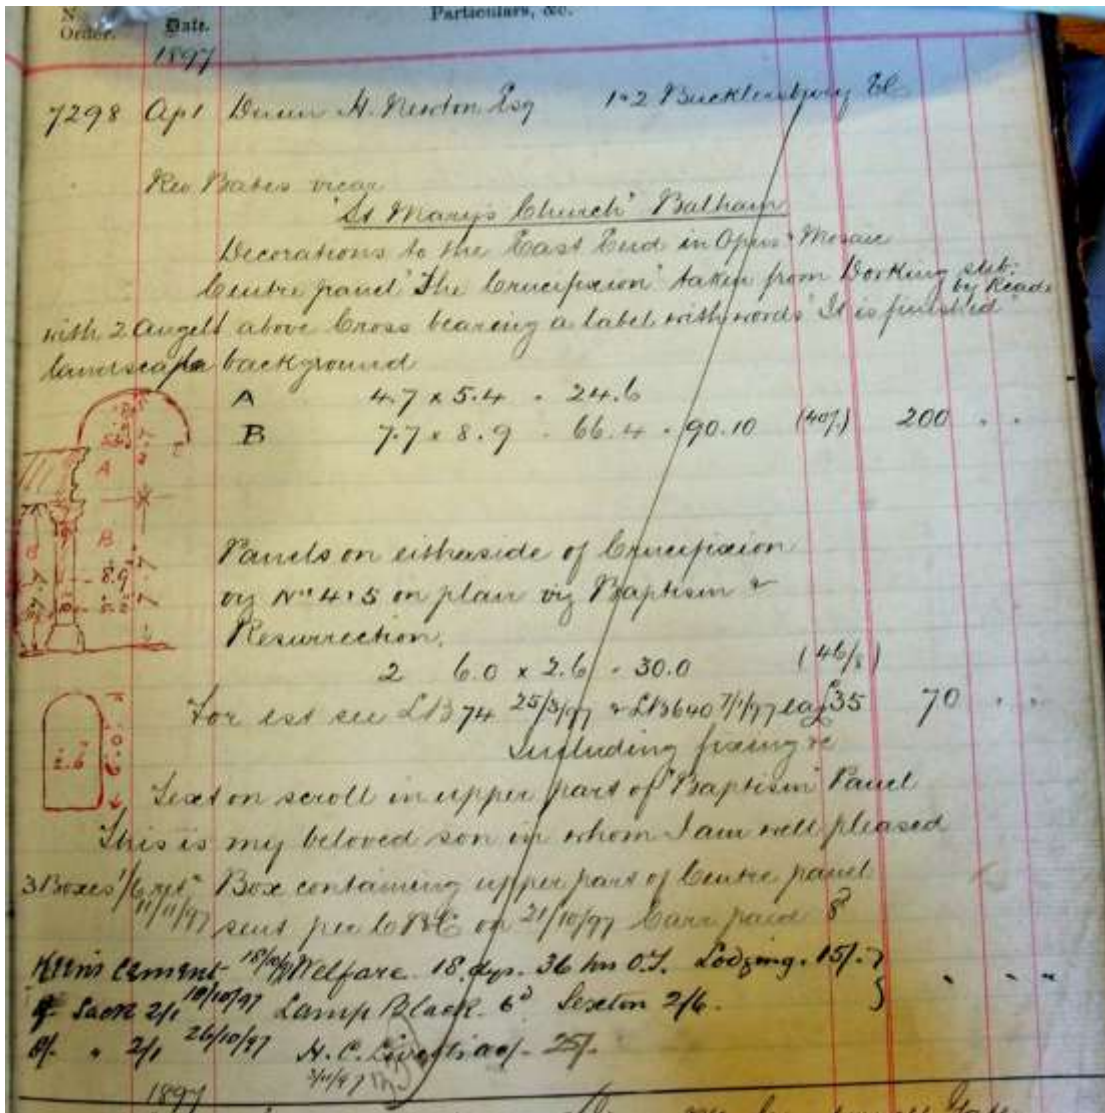 Order. Date. Particulars, &c.
1897
7298 Apl H. Newton Esq 1 & 2 Bucklersbury EC
Rev Bates vicar
"St Mary's Church" Balham
Decorations to the East End in Opus & Mosaic
Centre panel "The Crucifixion" taken from Dorking
by Reade
with 2 Angels above Cross bearing a label with words "It is finished"
landscape background
A 4.7 x 5.4 - 24.6
B 7.7 x 8.9 - 66.4 - 90.10 200 . .
A
B
8.9
Panels on either side of Crucifixion
viz Nos 4 & 5 on plan viz Baptism &
Resurrection.
2 6.0 x 2.6 - 30.0 (46/8)
For est see LB 74 25/3/97 & LB 640 7/1/97 ea £35 70 . .
Including fixing &c
2.6 6.0
Text on scroll in upper part of "Baptism" Panel
This is my beloved son in whom I am well pleased
3 Boxes 1/6 retd Box containing upper part of Centre panel
11/11/97 sent per on 21/10/97 Carr paid 8d
Keens cement Welfare. 18 dys. 36 hrs O.T. Lodging. 15/-
Sack 2/1 10/10/97 Lamp Black. 6d Sexton 2/6.
" 2/1 26/10/97 H. C. 25/-
3/11/97
1897